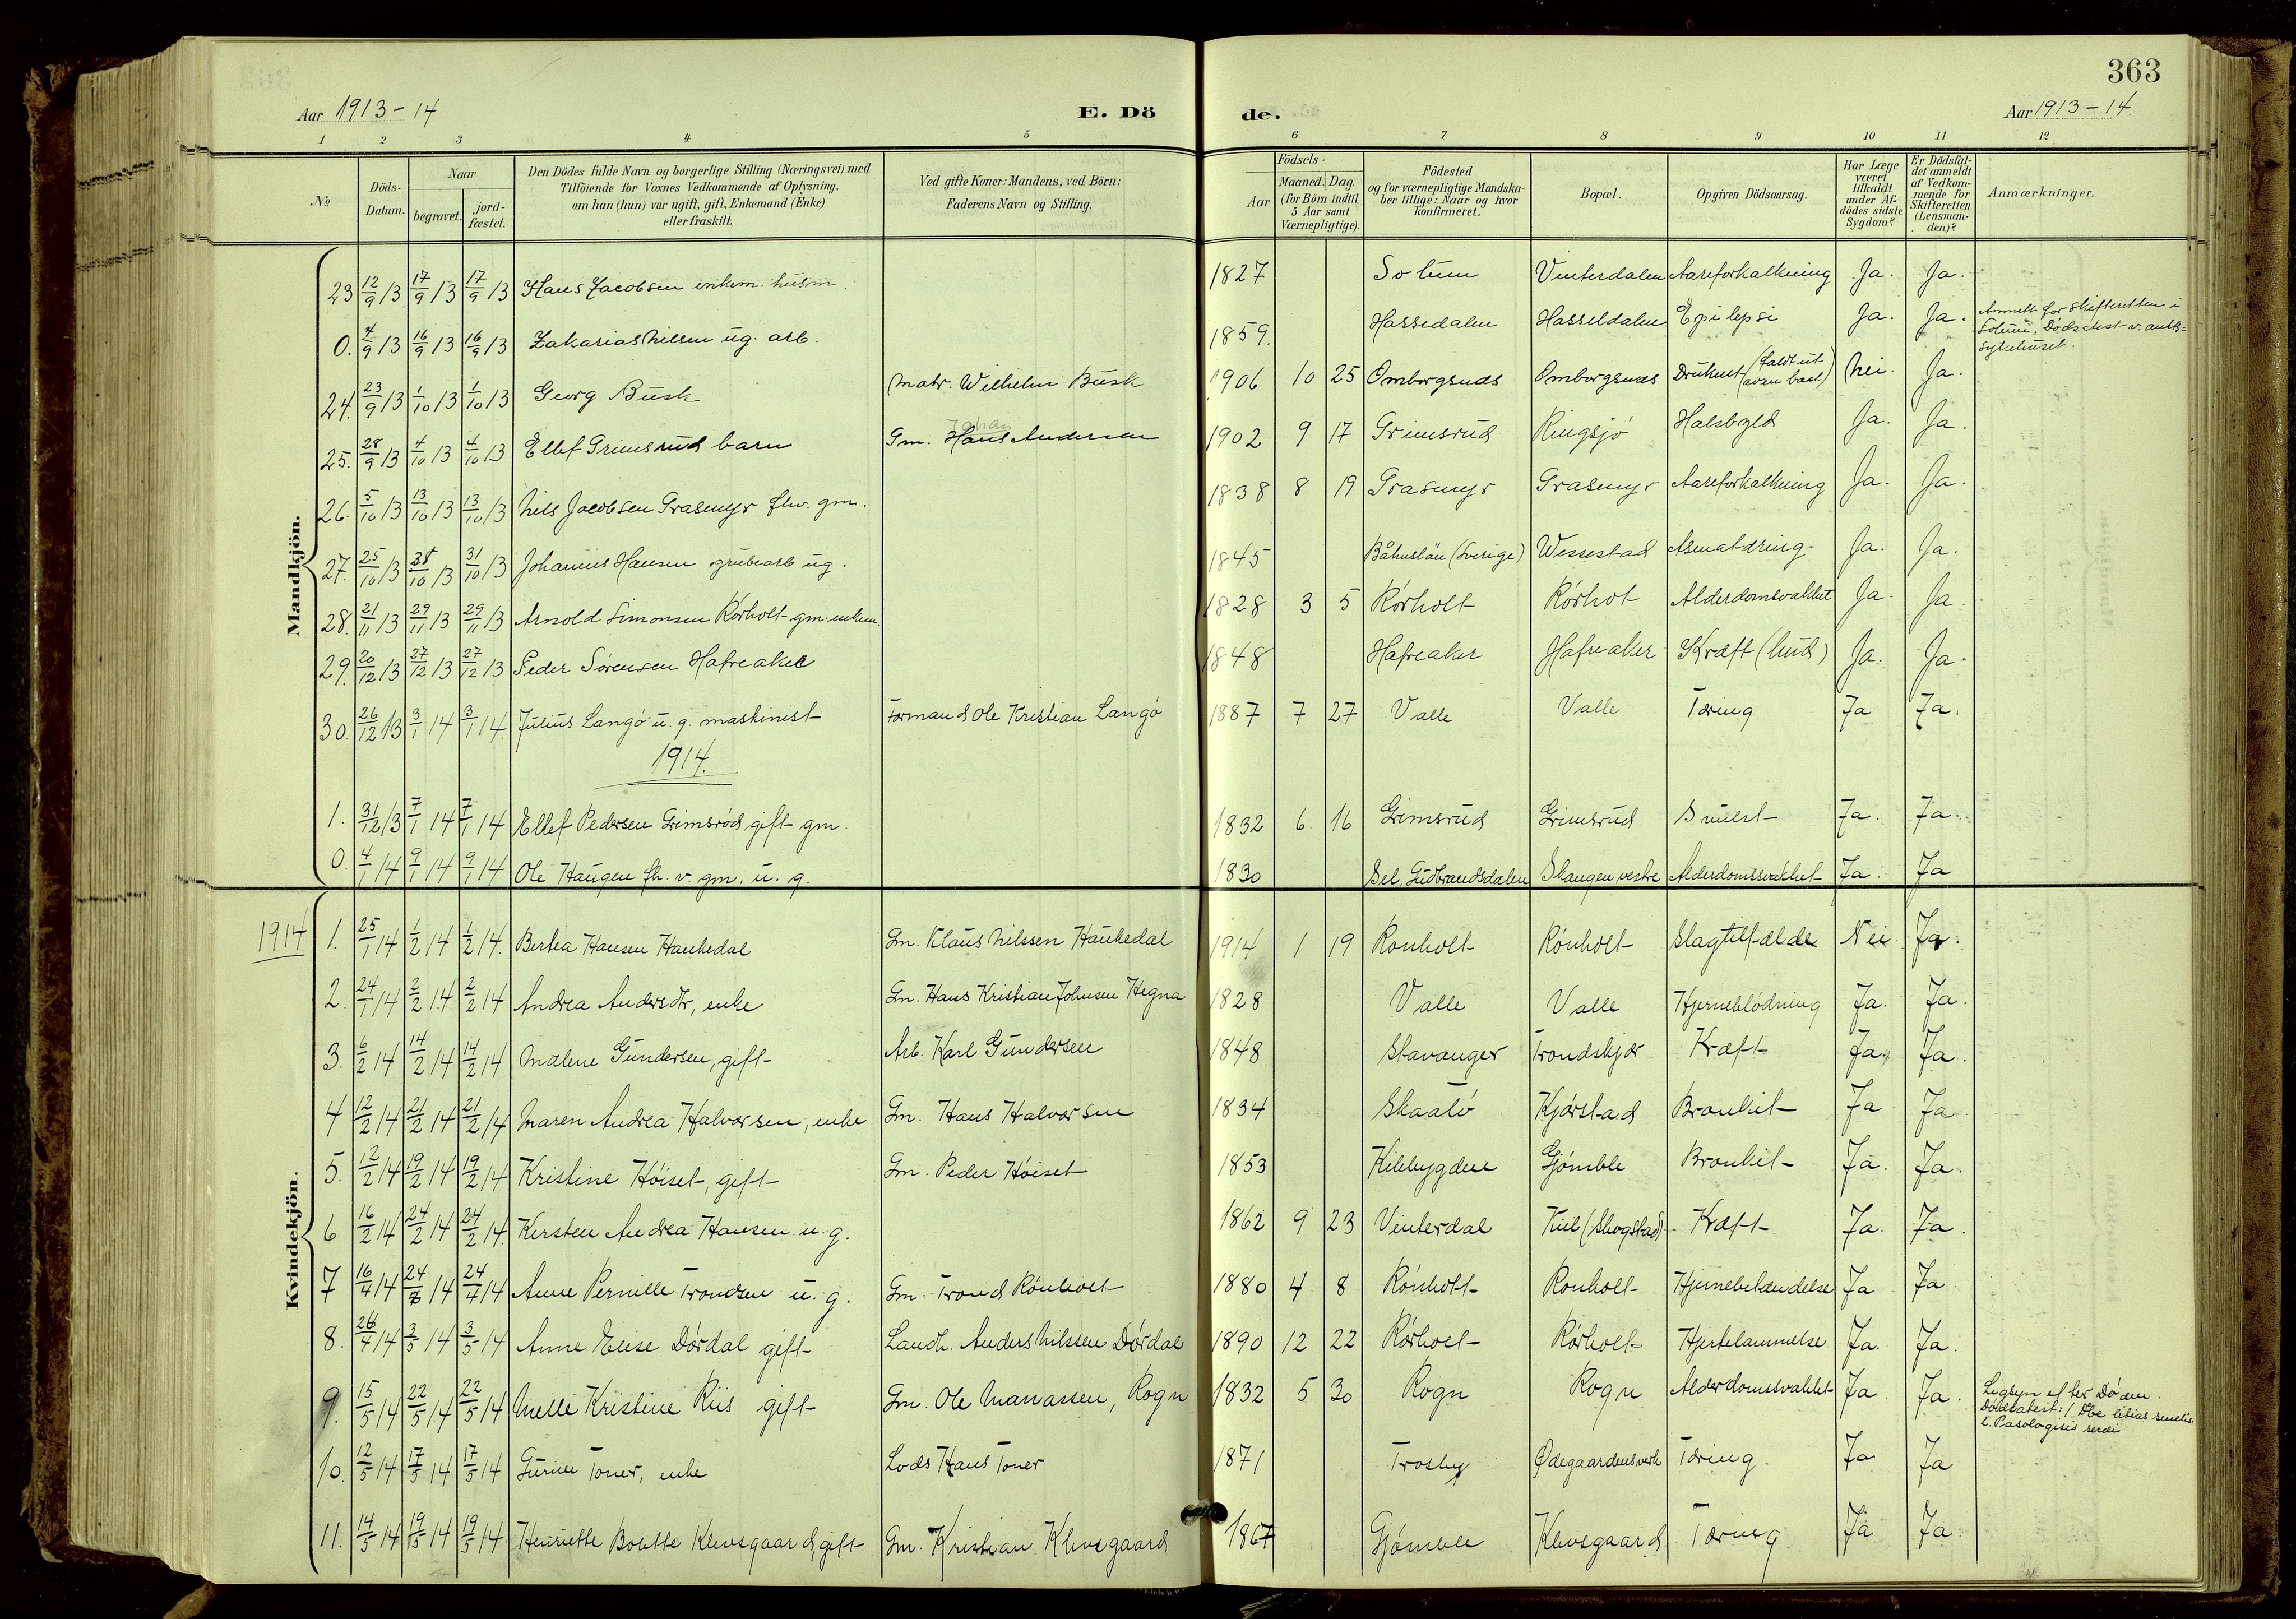 363
Aar 1913-14 E. Dö de. Aar 1913-14.
1 2 3 4 5 6 7 8 9 10 11 12
No Döds-Datum. Naar begravet. jord-fæstet. Den Dödes fulde Navn og borgerlige Stilling (Næringsvei) med Tilföiende for Voxnes Vedkommende af Oplysning, om han (hun) var ugift, gift, Enkemand (Enke) eller fraskilt. Ved gifte Koner: Mandens, ved Börn: Faderens Navn og Stilling. Födsels- Aar Maaned. Dag. (for Börn indtil 5 Aar samt Værnepligtige). Födested og for værnepligtige Mandskaber tillige: Naar og hvor konfirmeret. Bopæl. Opgiven Dödsaarsag. Har Læge været tilkaldt under Afdödes sidste Sygdom? Er Dödsfaldet anmeldt af Vedkommende for Skifteretten (Lensmanden)? Anmærkninger.
Mandkjön.
23 12/9 13 17/9 13 17/9 13 Hans Jacobsen enkem. husm. 1827 Solum Vinterdalen Aareforkalkning Ja. Ja.
0. 4/9 13 16/9 13 16/9 13 Zakarias Nilsen ug. arb. 1859. Hassedalen Hasseldalen Epilepsi Ja. Ja. Anmelt for skifteretten i Solum. Dødsattest v. amtssykehuset.
24. 23/9 13 1/10 13 1/10 13 Georg Busk Matr. Wilhelm Busk 1906 10 25 Omborgsnes Omborgsnes Druknet (faldt ut av en baat) Nei. Ja.
25. 28/9 13 4/10 13 4/10 13 Ellef Grimsrud barn Gm. Hans Andersen Johan 1902 9 17 Grimsrud Ringsjø Halsbyld Ja. Ja.
26. 5/10 13 13/10 13 13/10 13 Nils Jacobsen Grasmyr fhv. gm. 1838 8 19 Grasmyr Grasmyr Aareforkalkning Ja. Ja.
27. 25/10 13 /10 13 31/10 13 Johannes Hansen grubearb ug. 1845 Båhuslän (Sverige) Wessestad Ja. Ja.
28. 21/11 13 29/11 13 29/11 13 Arnold Simonsen Rörholt gm. enkem. 1828 3 5 Rörholt Rörhot Alderdomsvakhet Ja. Ja.
29. 20/12 13 27/12 13 27/12 13 Peder Sörensen Hafreaker 1848 Hafreaker Hafreaker Kræft (hud) Ja. Ja.
30. 26/12 13 3/1 14 3/1 14 Julius Langö u. g. maskinist Formand Ole Kristian Langö 1887 7 27 Valle Valle Tæring Ja Ja.
1914.
1. 31/12 13 7/1 14 7/1 14 Ellef Pedersen Grimsröd gift gm. 1832 6. 16 Grimsrud Grimsrud Svulst Ja. Ja.
0. 4/1 14 9/1 14 9/1 14 Ole Haugen fh. v. gm. u. g. 1830 Sel, Gudbrandsdalen Skaugen vestre Alderdomssvakhet Ja. Ja
Kvindekjön.
1914 1. 25/1 14 1/2 14 1/2 14. Bertea Hansen Haukedal Gm. Klaus Nilssen Haukedal 1914 1 19 Rönholt Rönholt Slagtilfælde Nei Ja.
2. 24/1 14 2/2 14 2/2 14 Andrea Andersdtr, enke Gm. Hans Kristian Johnsen Hegna 1828 Valle Valle Hjerneblödning Ja. Ja.
3. 6/2 14 14/2 14 14/2 14 Malene Gundersen, gift Arb. Karl Gundersen 1848 Stavanger Trondskjær Kræft Ja. Ja.
4 12/2 14 21/2 14 21/2 14 Maren Andrea Halvorsen, enke Gm. Hans Halvorsen 1834 Skaatö Kjörstad Bronkit Ja Ja
5. 12/2 14 19/2 14 19/2 14 Kristine Höiset, gift Gm. Peder Höiset 1853 Kilebygden Gjömble Bronkit Ja. Ja.
6 16/2 14 24/2 14 24/2 14. Kirsten Andrea Hansen u. g. 1862 9 23 Vinterdal Kiil (Skogstad) Kræft Ja. Ja.
7 16/4 14 24/ 14 24/4 14 Anne Pernille Trondsen u. g. Gm. Trond Rönholt 1880 4 8 Rönholt Rönholt Hjernebetændelse Ja Ja.
8. 26/4 14 3/5 14 3/5 14 Anne Elise Dördal gift Landh. Anders Nilssen Dördal 1890 12 22 Rörholt Rörholt Hjertelammelse Ja. Ja.
9. 15/5 14 22/5 14 22/5 14 Nelle Kristine Riis gift Gm. Ole Manassen, Rogn 1832 5 30 Rogn Rogn Alderdomssvakhet Ja Ja. Ligsyn efter Döden. Dödsatest:
10. 12/5 14 17/5 14 17/5 14 Gurine Toner, enke Lods Hans Toner 1871 Trosby Ødegaardensverk Tæring Ja Ja
11. 14/5 14 19/5 14 19/5 14 Henriette Bolette Klevsgaard, gift Gm. Kristian Klevsgaard 1867 Gjömble Klevsgaard Tæring Ja Ja